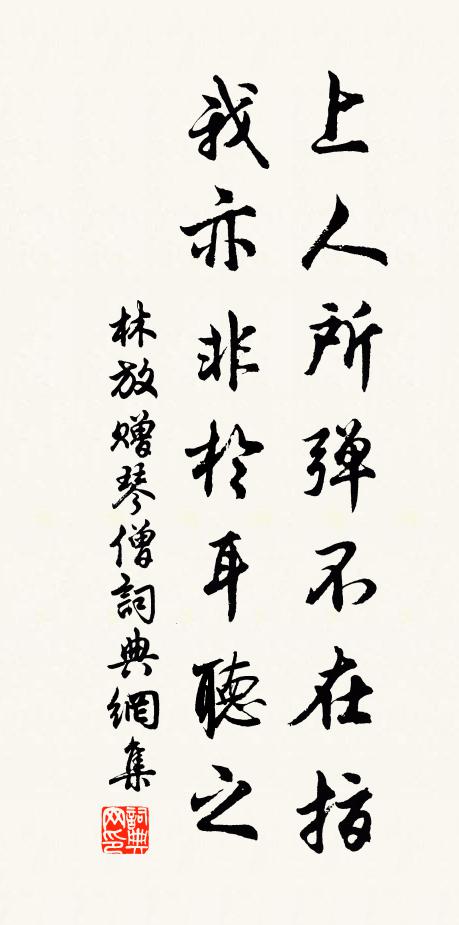 上人所弹不在指
我亦非於耳聽之
林放赠琴僧詞典網集
詞典網印